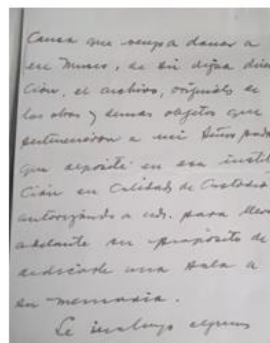 Causa que vengo a donar a
ese Museo, de su digna direc
ción, el archivo, originals de
las obras y demas objetos que
pertenecieron a mi Señor padre
que deposité en esa institu
ción en Calidad de Custodia
autorizándo a uds. para llevar
adelante su propósito de
dedicarle una Sala a
su memoria.
Le incluyo algunos